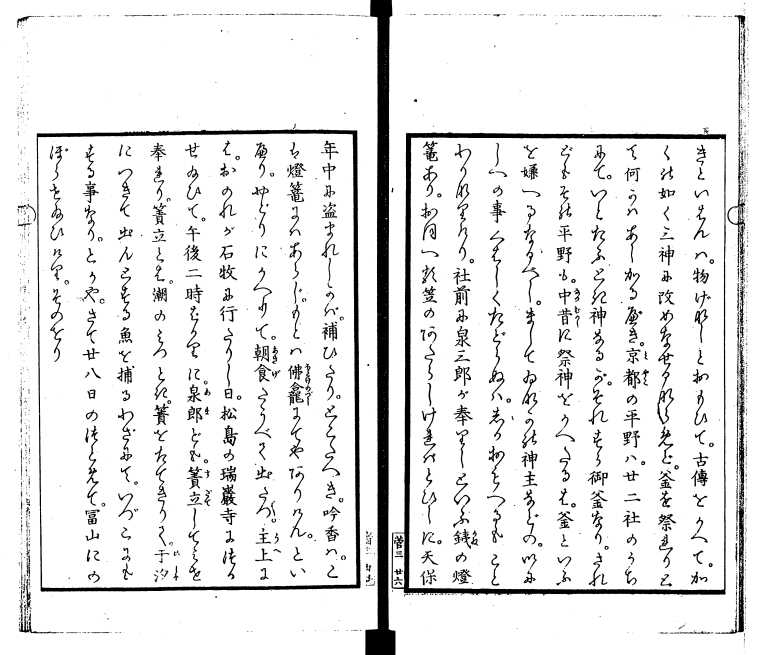 きといはんハ。物げなしとおもひて。古傳をかへて。か
くの如く三神に改めなせるなめれど。釜を祭れりと
て何かハあしかるべき。京都の平野ハ。廿二社のうち
にて。いとたふとき神なるが。それすら御釜なり。され
どもその平野も。中昔に祭神をかへたるも。釜といふ
を嫌へるなるべし。ましてゐなかの神主などの。いに
しへの事くはしくたどらぬハ。しかおもへるもこと
わりなりけり。社前に泉三郎が奉りしといふ銕の燈
篭あり。笠のあたらしければとひしに。天保
年中に盗まれしかバ。補ひたり。とこたへき。吟香ハ。こ
ハ燈篭にハあらじ。もとハ佛龕にてやありけん。とい
へり。やどりにかへりて。朝食たうべて出たつ。主上に
も。おのれが石牧に行たりし日。松島の瑞巖寺にわたら
せ給ひて。午後二時ばかりに。泉郎ども。簀立してみせ
奉れり。簀立とは。潮のみつとき。簀をたてきりて。干汐
につきて出んとする魚を捕るわざにて。いづこにも
する事なり。とかや。さて廿八日のつとめて。冨山にの
ぼらせ給ひけり。そのをり
菅三 廿六